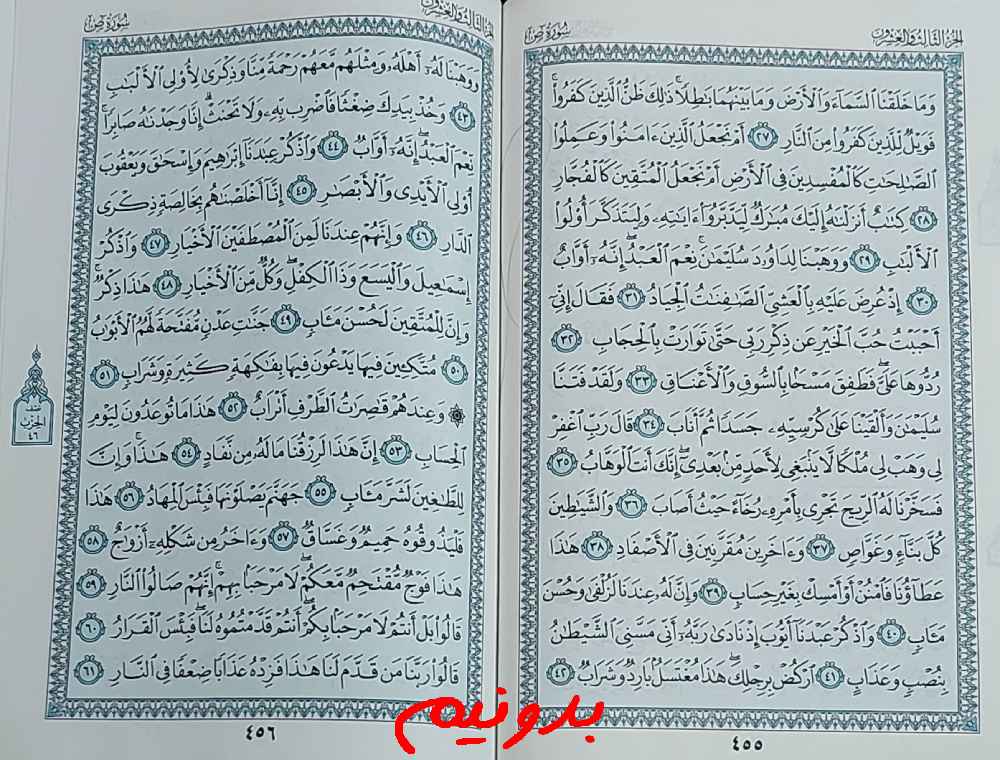 الجزء الثالث والعشرون
سورة ص
وَمَا خَلَقْنَا ٱلسَّمَآءَ وَٱلْأَرْضَ وَمَا بَيْنَهُمَا بَٰطِلًا ۚ ذَٰلِكَ ظَنُّ ٱلَّذِينَ كَفَرُوا۟ ۚ
فَوَيْلٌ لِّلَّذِينَ كَفَرُوا۟ مِنَ ٱلنَّارِ ٢٧ أَمْ نَجْعَلُ ٱلَّذِينَ ءَامَنُوا۟ وَعَمِلُوا۟
ٱلصَّٰلِحَٰتِ كَٱلْمُفْسِدِينَ فِى ٱلْأَرْضِ أَمْ نَجْعَلُ ٱلْمُتَّقِينَ كَٱلْفُجَّارِ
٢٨ كِتَٰبٌ أَنزَلْنَٰهُ إِلَيْكَ مُبَٰرَكٌ لِّيَدَّبَّرُوٓا۟ ءَايَٰتِهِۦ وَلِيَتَذَكَّرَ أُو۟لُوا۟
ٱلْأَلْبَٰبِ ٢٩ وَوَهَبْنَا لِدَاوُۥدَ سُلَيْمَٰنَ ۚ نِعْمَ ٱلْعَبْدُ ۖ إِنَّهُۥٓ أَوَّابٌ
٣٠ إِذْ عُرِضَ عَلَيْهِ بِٱلْعَشِىِّ ٱلصَّٰفِنَٰتُ ٱلْجِيَادُ ٣١ فَقَالَ إِنِّىٓ
أَحْبَبْتُ حُبَّ ٱلْخَيْرِ عَن ذِكْرِ رَبِّى حَتَّىٰ تَوَارَتْ بِٱلْحِجَابِ ٣٢
رُدُّوهَا عَلَىَّ ۖ فَطَفِقَ مَسْحًۢا بِٱلسُّوقِ وَٱلْأَعْنَاقِ ٣٣ وَلَقَدْ فَتَنَّا
سُلَيْمَٰنَ وَأَلْقَيْنَا عَلَىٰ كُرْسِيِّهِۦ جَسَدًا ثُمَّ أَنَابَ ٣٤ قَالَ رَبِّ ٱغْفِرْ
لِى وَهَبْ لِى مُلْكًا لَّا يَنۢبَغِى لِأَحَدٍ مِّنۢ بَعْدِىٓ ۖ إِنَّكَ أَنتَ ٱلْوَهَّابُ ٣٥
فَسَخَّرْنَا لَهُ ٱلرِّيحَ تَجْرِى بِأَمْرِهِۦ رُخَآءً حَيْثُ أَصَابَ ٣٦ وَٱلشَّيَٰطِينَ
كُلَّ بَنَّآءٍ وَغَوَّاصٍ ٣٧ وَءَاخَرِينَ مُقَرَّنِينَ فِى ٱلْأَصْفَادِ ٣٨ هَٰذَا
عَطَآؤُنَا فَٱمْنُنْ أَوْ أَمْسِكْ بِغَيْرِ حِسَابٍ ٣٩ وَإِنَّ لَهُۥ عِندَنَا لَزُلْفَىٰ وَحُسْنَ
مَـَٔابٍ ٤٠ وَٱذْكُرْ عَبْدَنَآ أَيُّوبَ إِذْ نَادَىٰ رَبَّهُۥٓ أَنِّى مَسَّنِىَ ٱلشَّيْطَٰنُ
بِنُصْبٍ وَعَذَابٍ ٤١ ٱرْكُضْ بِرِجْلِكَ ۖ هَٰذَا مُغْتَسَلٌۢ بَارِدٌ وَشَرَابٌ ٤٢
٤٥٥
الجزء الثالث والعشرون
سورة ص
وَوَهَبْنَا لَهُۥٓ أَهْلَهُۥ وَمِثْلَهُم مَّعَهُمْ رَحْمَةً مِّنَّا وَذِكْرَىٰ لِأُو۟لِى ٱلْأَلْبَٰبِ
٤٣ وَخُذْ بِيَدِكَ ضِغْثًا فَٱضْرِب بِّهِۦ وَلَا تَحْنَثْ ۗ إِنَّا وَجَدْنَٰهُ صَابِرًا ۚ
نِّعْمَ ٱلْعَبْدُ ۖ إِنَّهُۥٓ أَوَّابٌ ٤٤ وَٱذْكُرْ عِبَٰدَنَآ إِبْرَٰهِيمَ وَإِسْحَٰقَ وَيَعْقُوبَ
أُو۟لِى ٱلْأَيْدِى وَٱلْأَبْصَٰرِ ٤٥ إِنَّآ أَخْلَصْنَٰهُم بِخَالِصَةٍ ذِكْرَى
ٱلدَّارِ ٤٦ وَإِنَّهُمْ عِندَنَا لَمِنَ ٱلْمُصْطَفَيْنَ ٱلْأَخْيَارِ ٤٧ وَٱذْكُرْ
إِسْمَٰعِيلَ وَٱلْيَسَعَ وَذَا ٱلْكِفْلِ ۖ وَكُلٌّ مِّنَ ٱلْأَخْيَارِ ٤٨ هَٰذَا ذِكْرٌ ۚ
وَإِنَّ لِلْمُتَّقِينَ لَحُسْنَ مَـَٔابٍ ٤٩ جَنَّٰتِ عَدْنٍ مُّفَتَّحَةً لَّهُمُ ٱلْأَبْوَٰبُ
٥٠ مُتَّكِـِٔينَ فِيهَا يَدْعُونَ فِيهَا بِفَٰكِهَةٍ كَثِيرَةٍ وَشَرَابٍ ٥١
۞ وَعِندَهُمْ قَٰصِرَٰتُ ٱلطَّرْفِ أَتْرَابٌ ٥٢ هَٰذَا مَا تُوعَدُونَ لِيَوْمِ
ٱلْحِسَابِ ٥٣ إِنَّ هَٰذَا لَرِزْقُنَا مَا لَهُۥ مِن نَّفَادٍ ٥٤ هَٰذَا ۚ وَإِنَّ
لِلطَّٰغِينَ لَشَرَّ مَـَٔابٍ ٥٥ جَهَنَّمَ يَصْلَوْنَهَا فَبِئْسَ ٱلْمِهَادُ ٥٦ هَٰذَا
فَلْيَذُوقُوهُ حَمِيمٌ وَغَسَّاقٌ ٥٧ وَءَاخَرُ مِن شَكْلِهِۦٓ أَزْوَٰجٌ ٥٨
هَٰذَا فَوْجٌ مُّقْتَحِمٌ مَّعَكُمْ ۖ لَا مَرْحَبًۢا بِهِمْ ۚ إِنَّهُمْ صَالُوا۟ ٱلنَّارِ ٥٩
قَالُوا۟ بَلْ أَنتُمْ لَا مَرْحَبًۢا بِكُمْ ۖ أَنتُمْ قَدَّمْتُمُوهُ لَنَا ۖ فَبِئْسَ ٱلْقَرَارُ ٦٠
قَالُوا۟ رَبَّنَا مَن قَدَّمَ لَنَا هَٰذَا فَزِدْهُ عَذَابًا ضِعْفًا فِى ٱلنَّارِ ٦١
نصف
الحزب
٤٦
٤٥٦
بدونیم